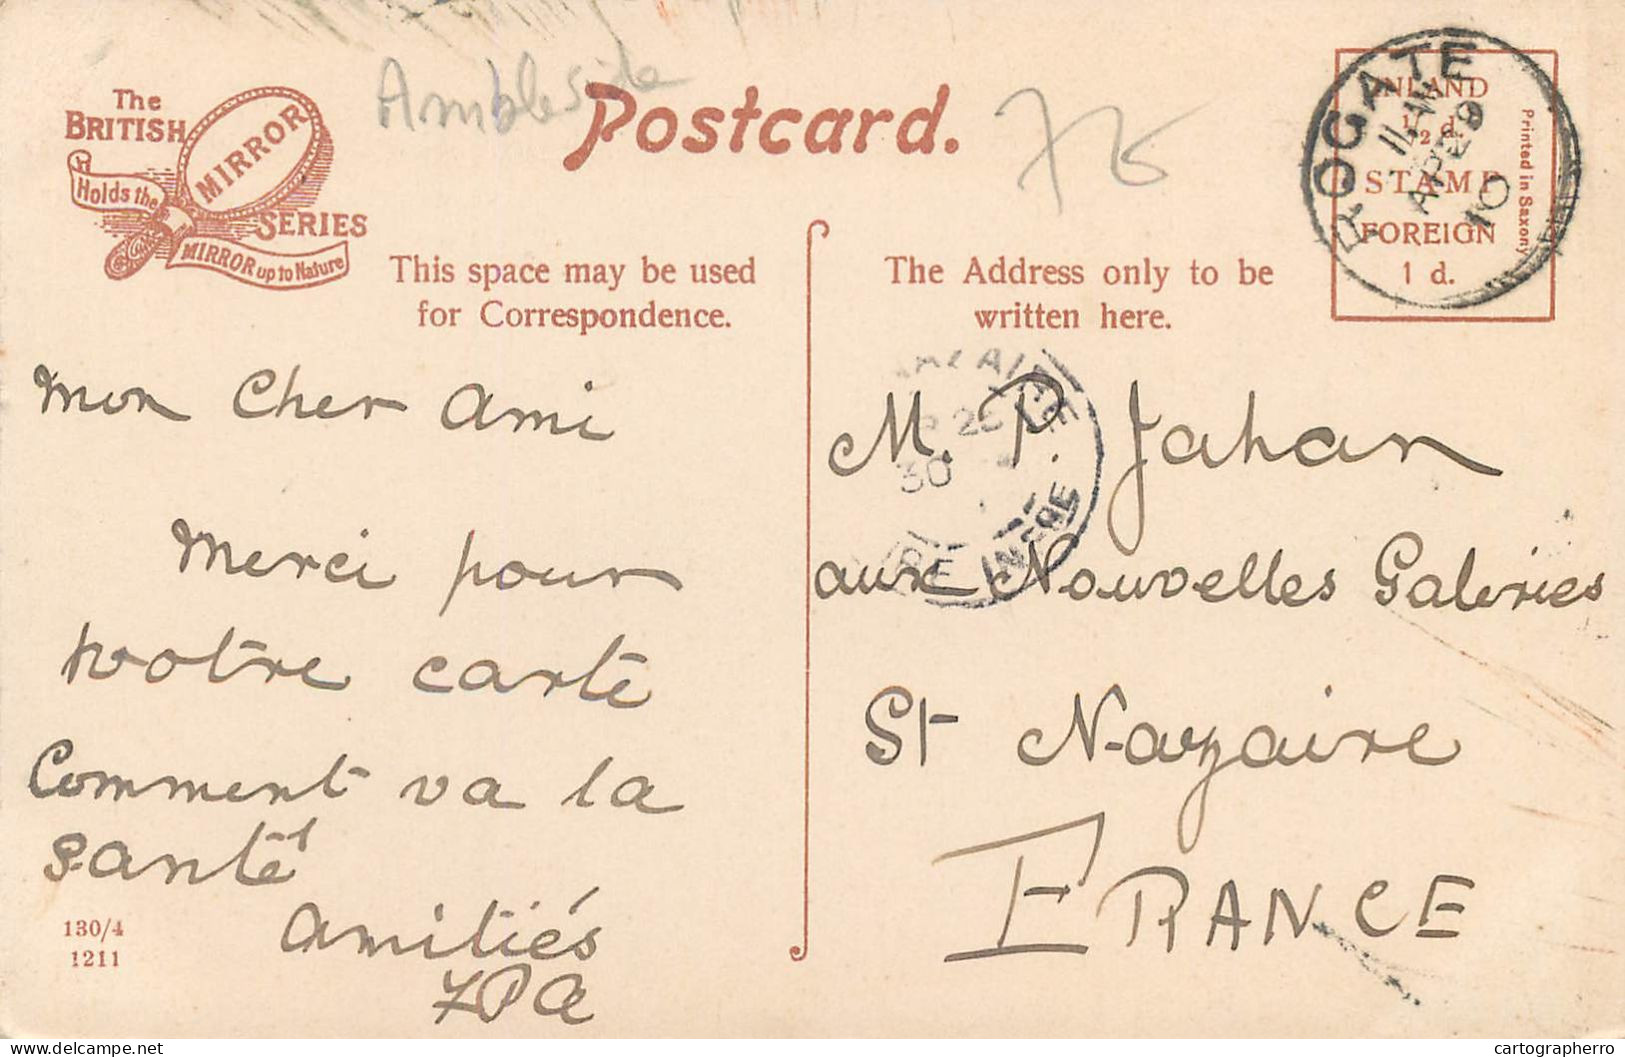 The
BRITISH
MIRROR
SERIES
Holds the
MIRROR up to Nature
Ambleside
Postcard.
75
ROGATE
11
AP 29
10
INLAND
½ d.
STAMP
FOREIGN
1 d.
Printed in Saxony
This space may be used
for Correspondence.
The Address only to be
written here.
30
Mon Cher Ami
Merci pour
votre carte
Comment va la
santé
Amitiés
M. P. Jahan
aux Nouvelles Galeries
St Nazaire
FRANCE
130/4
1211
cartographerro